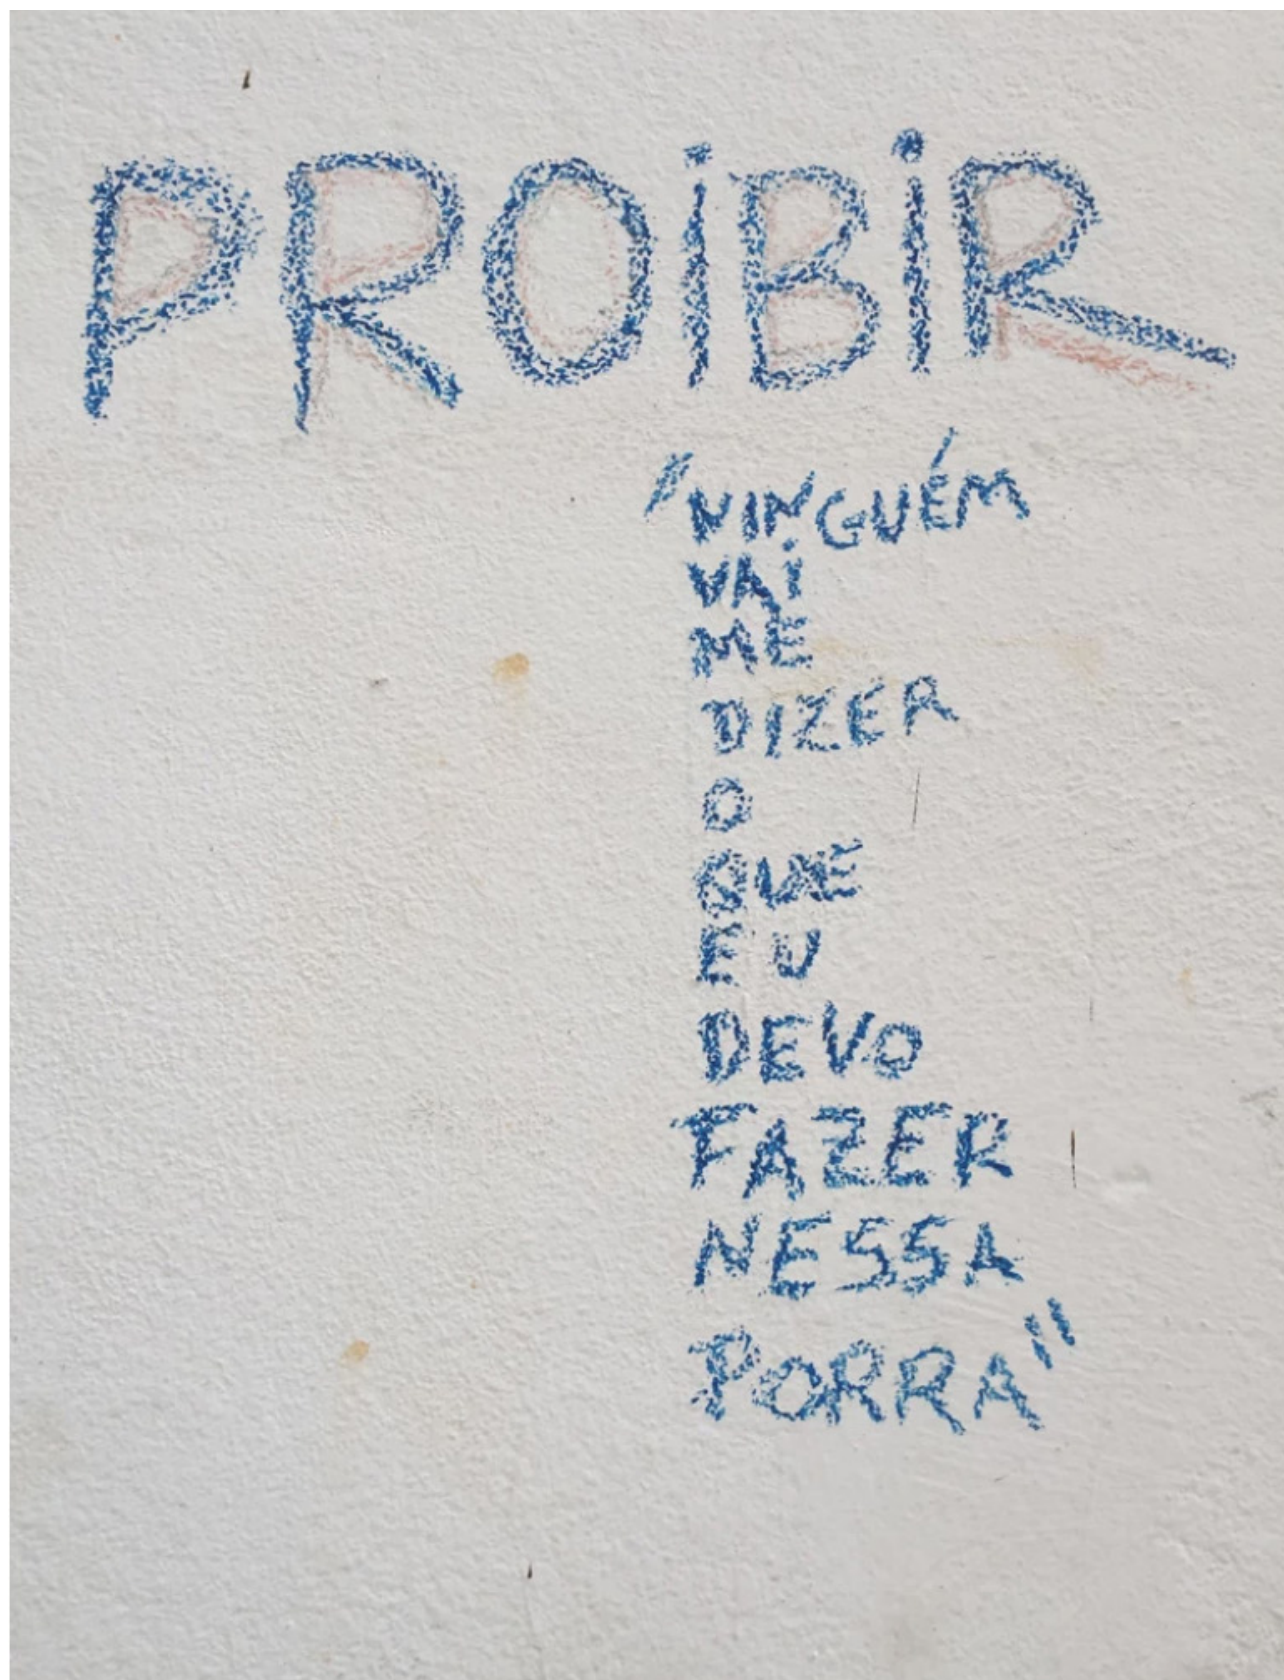 PROiBiR
"NINGUÉM
VAi
ME
DIZER
O
QUE
EU
DEVO
FAZER
NESSA
PORRA"